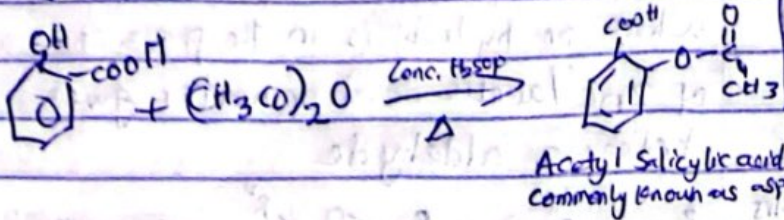 OH
COOH
+ (CH3CO)2O Conc. H2SO4
Δ
COOH
O
O-C
CH3
Acetyl Salicylic acid
Commonly known as asp